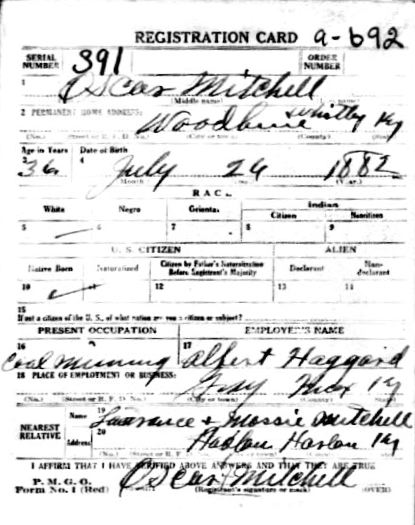 REGISTRATION CARD 9-692
SERIAL NUMBER 391 ORDER NUMBER
1 Oscar Mitchell
(Middle name)
2 PERMANENT HOME ADDRESS: Woodbine Whitley Ky
(No.) (Street or R. F. D. No.) (City or town) (County) (State)
Age in Years Date of Birth
3 36 4 July 26 1882
(Month) (Year)
RACE
White Negro Oriental Indian
Citizen Noncitizen
5 6 7 8 9
U. S. CITIZEN ALIEN
Native Born Naturalized Citizen by Father's Naturalization Before Registrant's Majority Declarant Non-declarant
10 11 12 13 14
15
If not a citizen of the U. S., of what nation are you a citizen or subject?
PRESENT OCCUPATION EMPLOYER'S NAME
16 Coal Mining 17 Albert Haggard
18 PLACE OF EMPLOYMENT OR BUSINESS: Gray Knox Ky
(No.) (Street or R. F. D. No.) (City or town) (County) (State)
NEAREST RELATIVE Name 19 Laurance & Mossie Mitchell
Address 20 Harlan Harlan Ky
(No.) (Street or R. F. D. No.) (City or town) (County) (State)
I AFFIRM THAT I HAVE VERIFIED ABOVE ANSWERS AND THAT THEY ARE TRUE
P. M. G. O.
Form No. 1 (Red) Oscar Mitchell
(Registrant's signature or mark) (OVER)